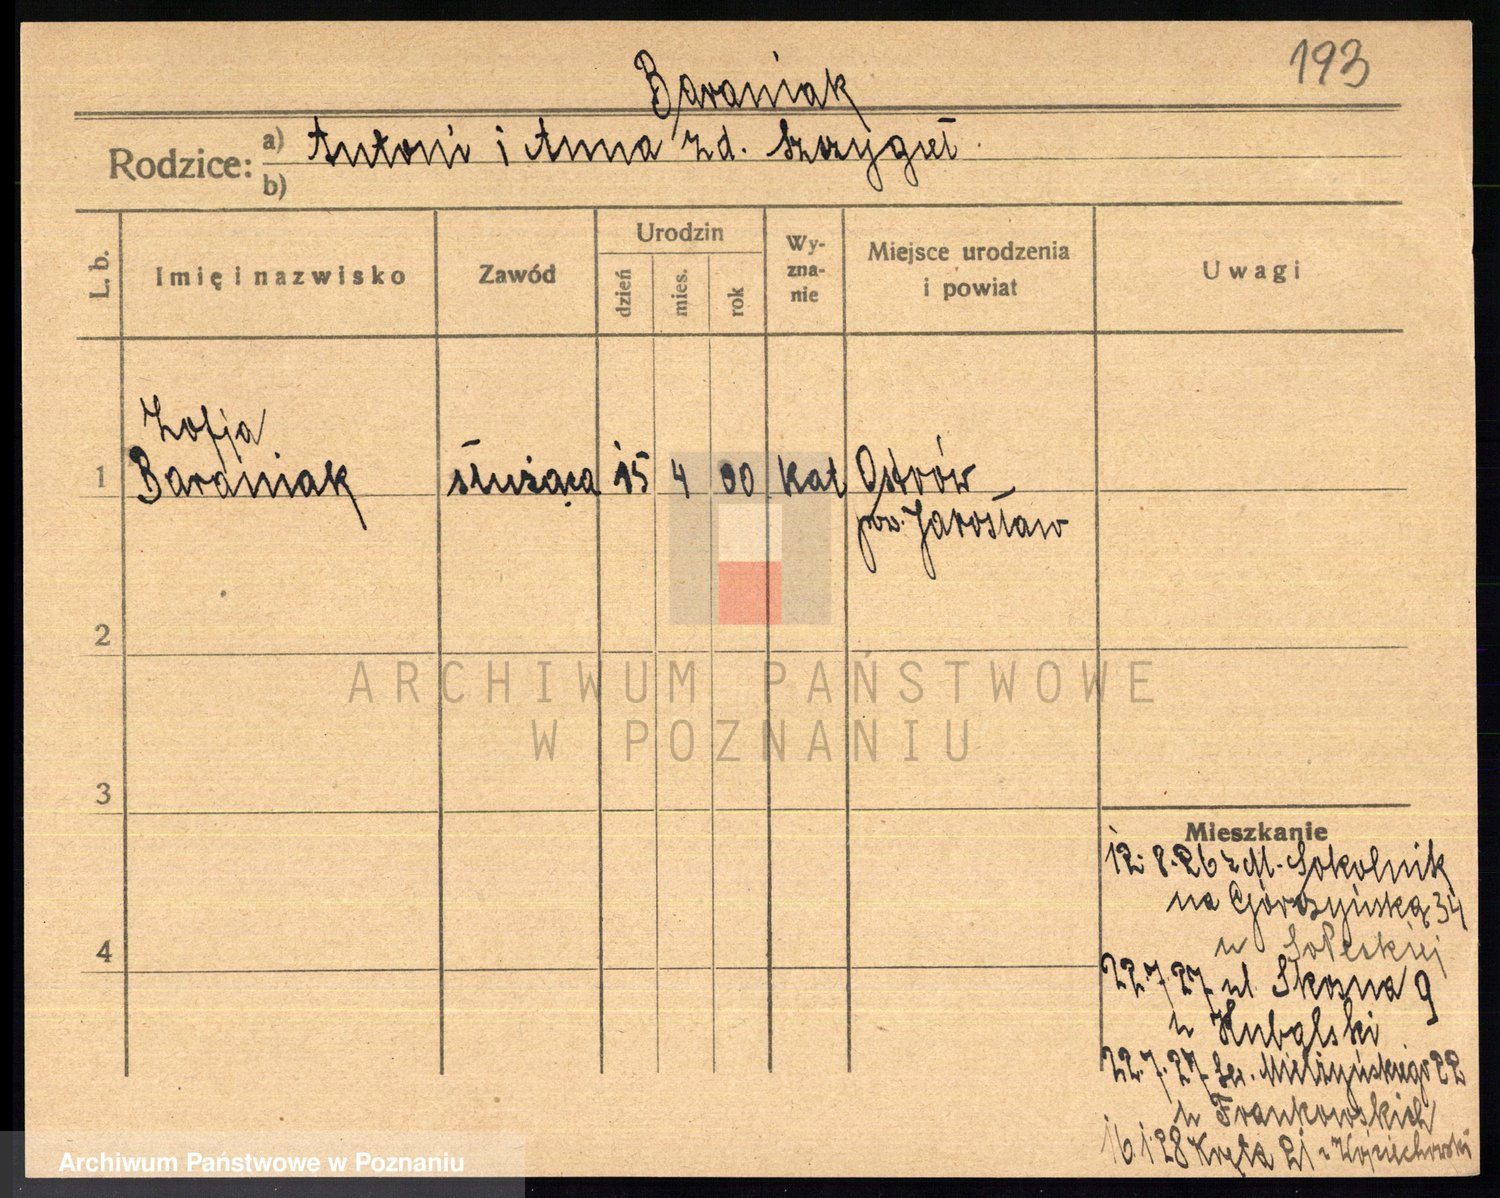 193
Baraniak
Rodzice: a) Antoni i Anna zd. Szczygieł
b)
L. b.
Imię i nazwisko
Zawód
Urodzin
dzień
mies.
rok
Wy-
zna-
nie
Miejsce urodzenia
i powiat
Uwagi
Zofja
1 Baraniak służąca 15 4 00 kat Ostrów
pow. Jarosław
2
3
4
Mieszkanie
12.8.26 z M. Sokolnik
na Górczyńską 34
u Soleckiej
22.7.27 ul Skosna 9
u Kubalski
22.7.27 Mielżyńskiego 22
u Frankowskich
16.1.28 Kręta 21 Wojciechowski
ARCHIWUM PAŃSTWOWE
W POZNANIU
Archiwum Państwowe w Poznaniu